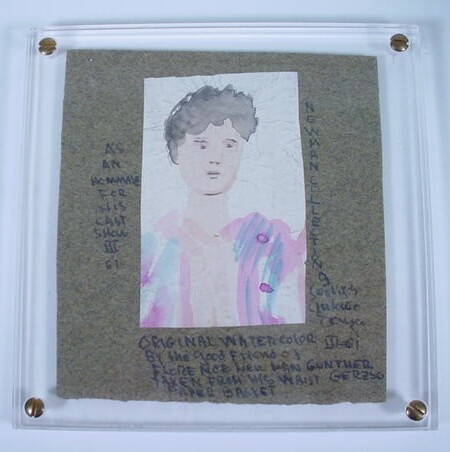 AS
AN
HOMMAGE
FOR
HIS
LAST
SHOW
III
61
NEWMAN COLLECTION
ORIGINAL WATERCOLOR II-61
By the good Friend of
FLORENCE NEWMAN GUNTHER
TAKEN FROM HIS WAIST GERZSO
PAPER BASKET